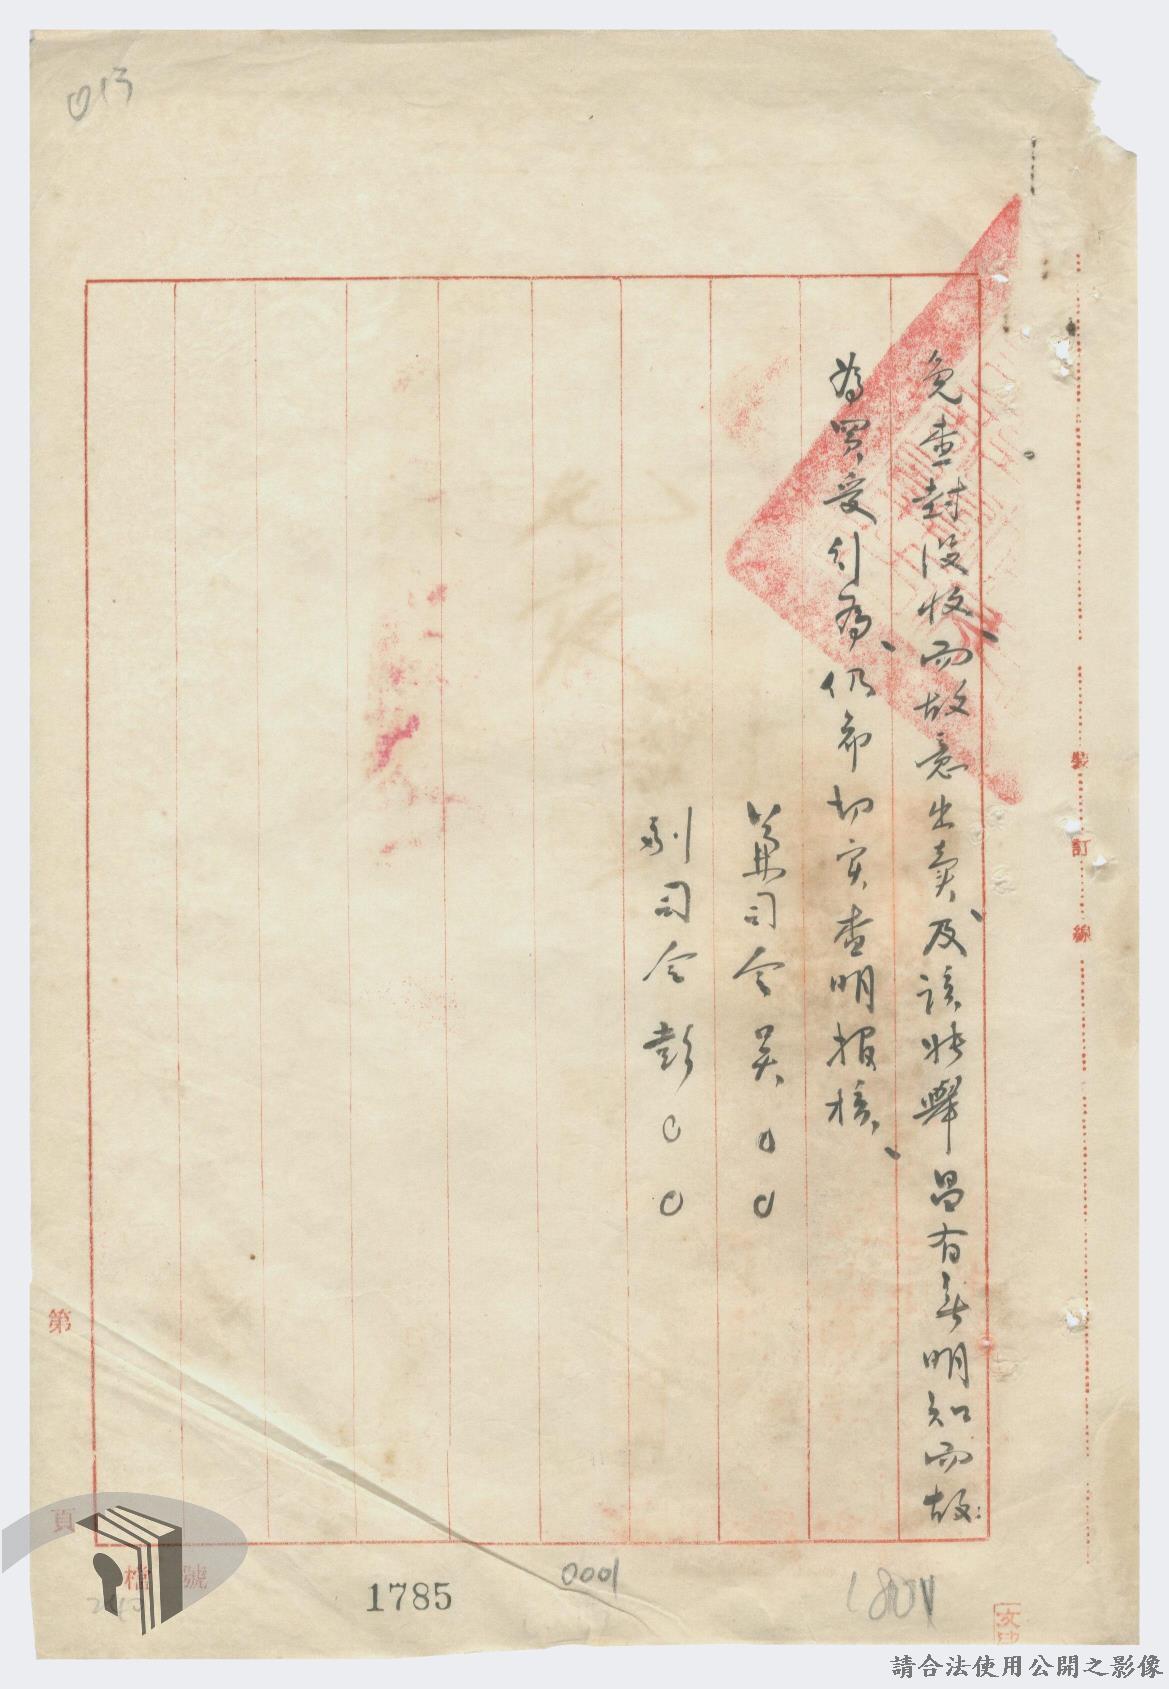 013
免查封没收、而故意出卖、及該收舉昌有無明知而故
為買受行為、仍希切实查明报核、
兼司令吴〇〇
副司令彭〇〇
裝訂線
第
頁
檔號
1785
0001
1801
請合法使用公開之影像